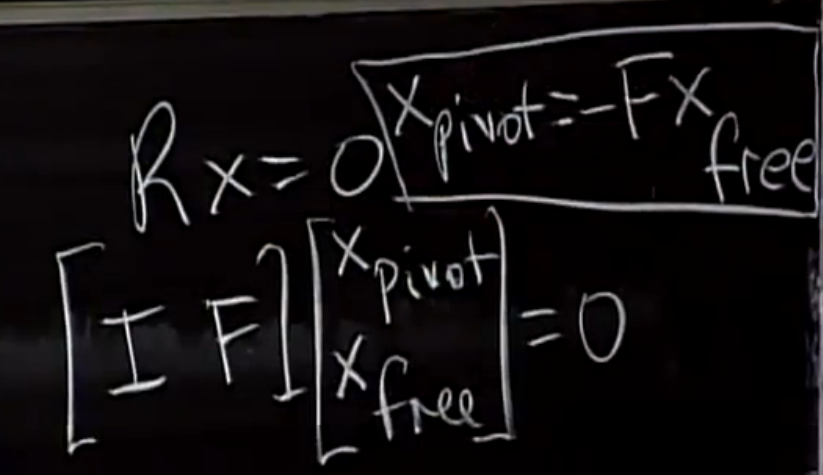 Rx=0
x_pivot=-Fx_free
[I F][x_pivot x_free]=0